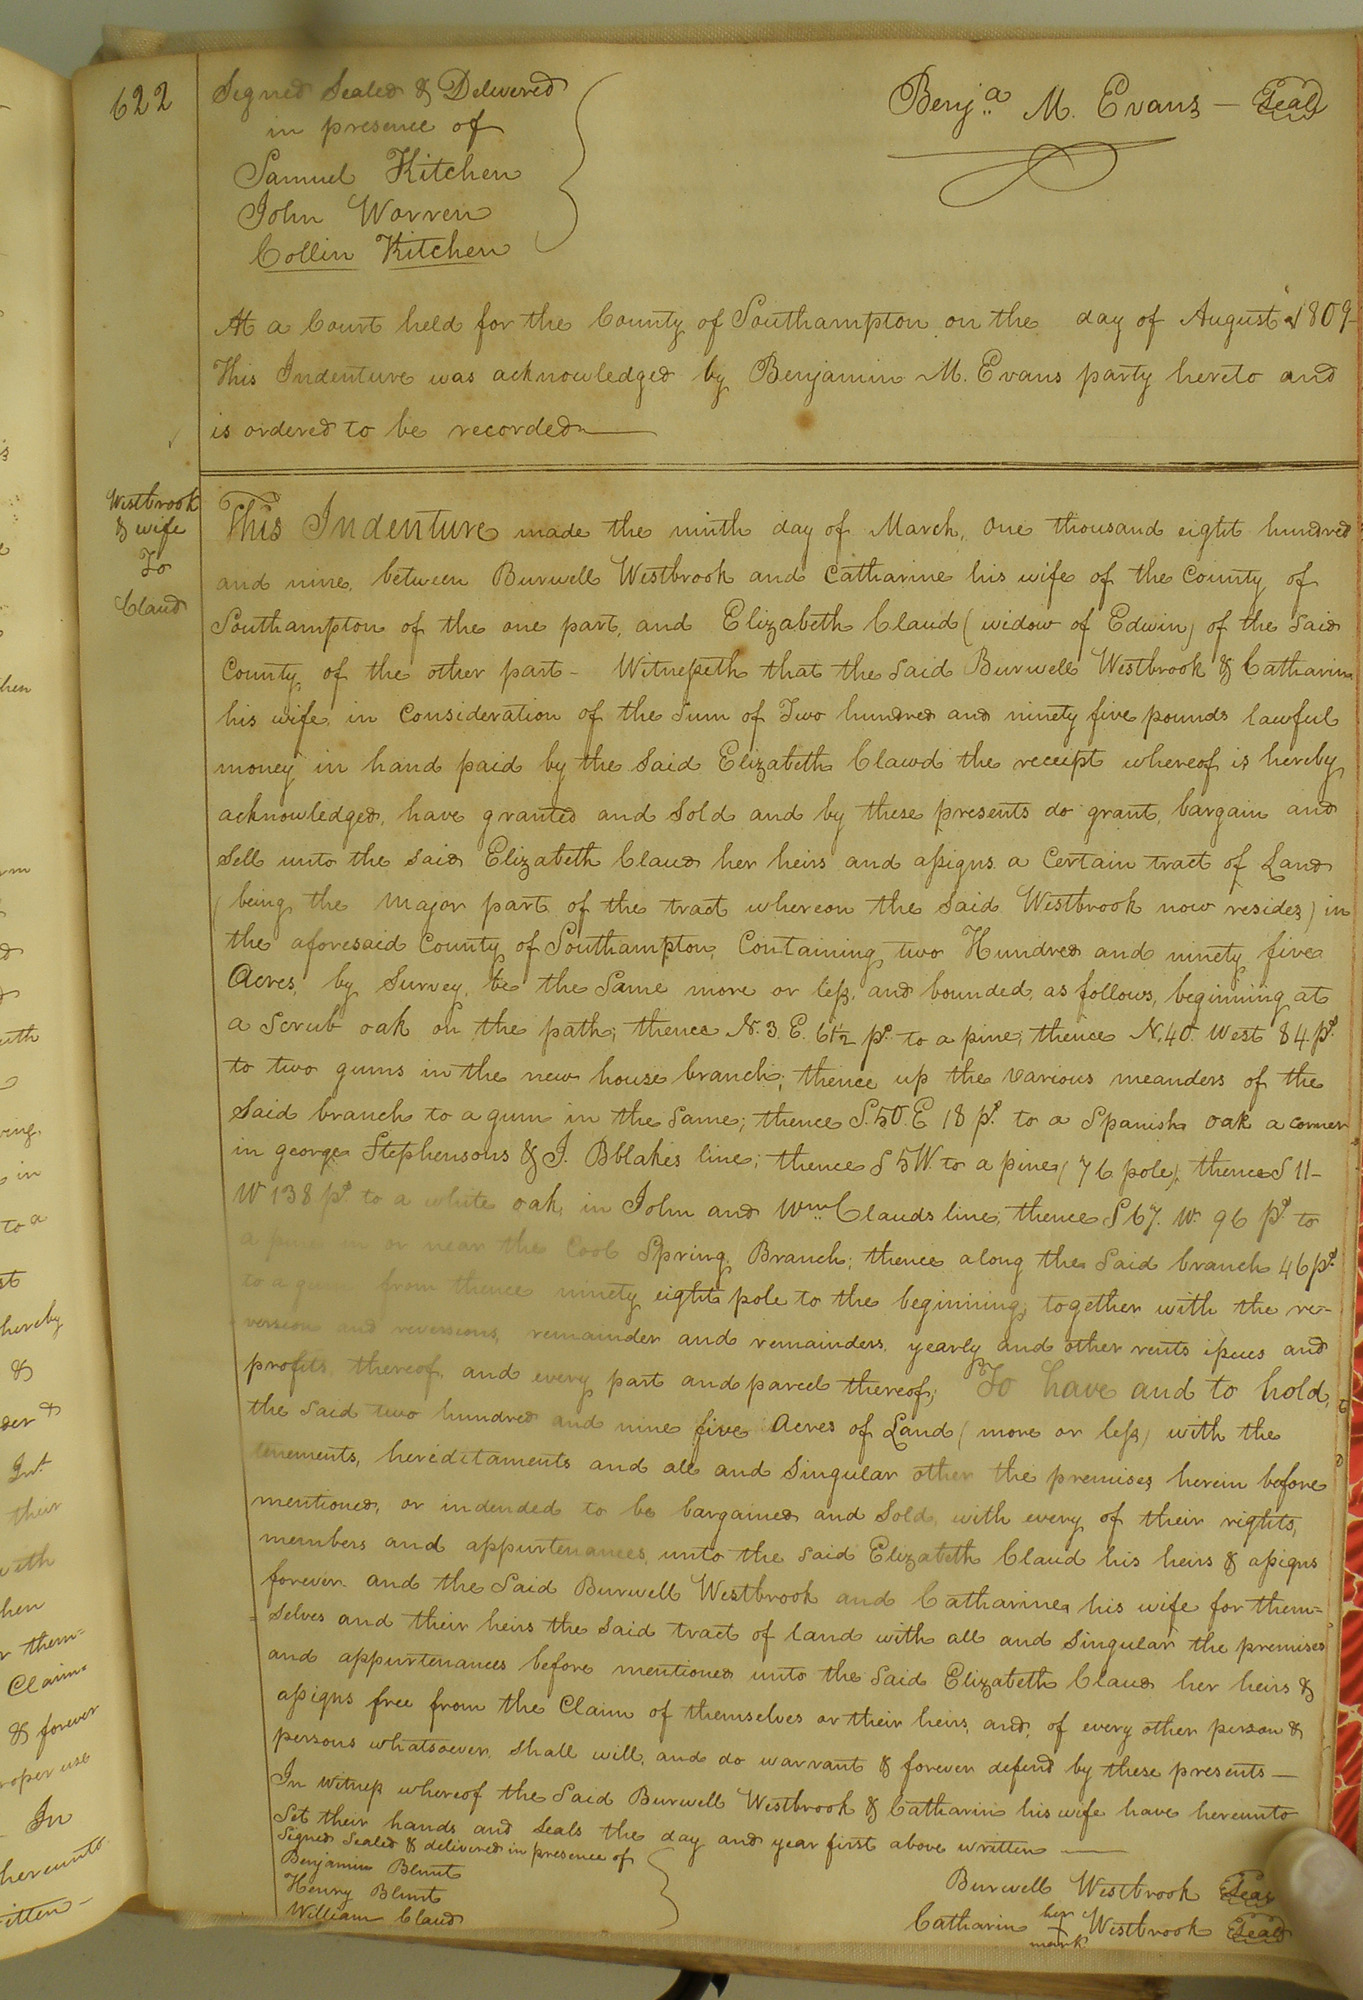 622
Signed Sealed & Delivered
in presence of
Samuel Kitchen
John Warren
Collin Kitchen
Benja M. Evans — Seal
At a Court held for the County of Southampton on the day of August 1809
This Indenture was acknowledged by Benjamin M. Evans party hereto and
is ordered to be recorded
Westbrook
& wife
To
Claud
This Indenture made the ninth day of March, one thousand eight hundred
and nine, between Burwell Westbrook and Catharine his wife of the County of
Southampton of the one part, and Elizabeth Claud (widow of Edwin) of the said
County, of the other part - Witnesseth that the said Burwell Westbrook & Catharin
his wife, in Consideration of the Sum of Two hundred and ninety five pounds lawful
money in hand paid by the said Elizabeth Clawd the receipt whereof is hereby
acknowledged, have granted and Sold and by these presents do grant, bargain and
Sell unto the said Elizabeth Claud her heirs and assigns a Certain tract of Land
(being the Major part of the tract whereon the said Westbrook now resides) in
the aforesaid County of Southampton, Containing two Hundred and ninety five
Acres, by Survey, be the Same more or less, and bounded, as follows, beginning at
a Scrub oak on the path; thence N. 3 E. 61½ ps. to a pine; thence N. 40 West 84 ps.
to two gums in the new house branch; thence up the various meanders of the
said branch to a gum in the Same; thence S. 50. E 18 ps. to a Spanish oak a corner
in george Stephensons & J. Bblakes line; thence S 5 W. to a pine (76 pole), thence S 11-
W 138 ps. to a white oak, in John and Wm. Clauds line; thence S 67. W. 96 ps. to
a in or near the Cool Spring Branch; thence along the said branch 46 ps.
to a gum from thence ninety eight pole to the beginning; together with the re-
version and reversions, remainder and remainders, yearly and other rents issues and
profits, thereof, and every part and parcel thereof; To have and to hold,
the said two hundred and nine five Acres of Land (more or less) with the
tenements, hereditaments and all and Singular other the premises herein before
mentioned, or indended to be bargained and Sold, with every of their rights,
members and appurtenances, unto the said Elizabeth Claud his heirs & assigns
forever. and the Said Burwell Westbrook and Catharine his wife for them=
selves and their heirs the said tract of land with all and Singular the premises
and appurtenances before mentioned unto the said Elizabeth Claud her heirs &
assigns free from the Claim of themselves or their heirs, and, of every other person &
persons whatsoever, shall will, and do warrant & forever defend by these presents —
In witness whereof the Said Burwell Westbrook & Catharin his wife have hereunto
Set their hands and Seals the day and year first above written
Signed Sealed & delivered in presence of
Benjamin Blunt
Henry Blunt
William Claud
Burwell Westbrook Seal
her
Catharin + Westbrook Seal
mark